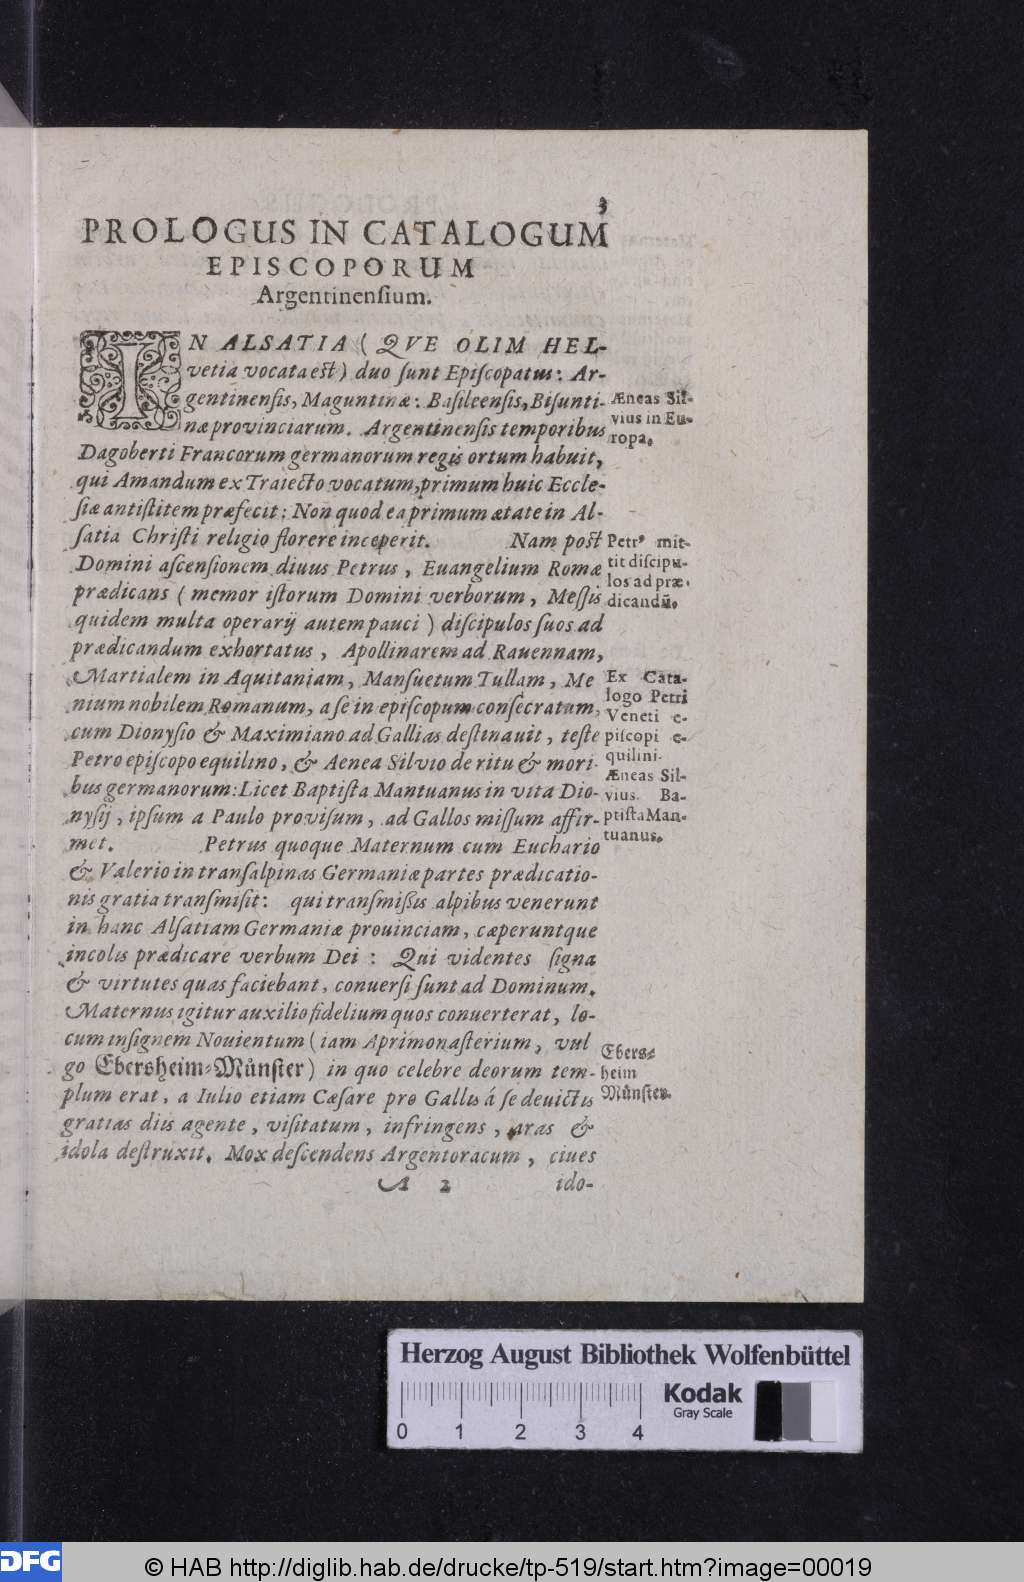 3
PROLOGUS IN CATALOGUM
EPISCOPORUM
Argentinensium.
IN ALSATIA ( QVE OLIM HEL-
vetia vocata est ) duo ſunt Epiſcopatus: Ar-
gentinenſis, Maguntinæ: Baſileenſis, Biſunti-
næ provinciarum. Argentinenſis temporibus
Dagoberti Francorum germanorum regis ortum habuit,
qui Amandum ex Traiecto vocatum, primum huic Eccle-
ſiæ antiſtitem præfecit: Non quod ea primum ætate in Al-
ſatia Chriſti religio florere inceperit. Nam poſt
Domini aſcenſionem diuus Petrus, Euangelium Romæ
prædicans ( memor iſtorum Domini verborum, Meſſis
quidem multa operarij autem pauci ) diſcipulos ſuos ad
prædicandum exhortatus, Apollinarem ad Rauennam,
Martialem in Aquitaniam, Manſuetum Tullam, Me
nium nobilem Romanum, a ſe in epiſcopum conſecratum,
cum Dionyſio & Maximiano ad Gallias deſtinauit, teſte
Petro epiſcopo equilino, & Aenea Silvio de ritu & mori-
bus germanorum: Licet Baptiſta Mantuanus in vita Dio-
nyſij, ipſum a Paulo proviſum, ad Gallos miſſum affir-
met. Petrus quoque Maternum cum Euchario
& Valerio in tranſalpinas Germaniæ partes prædicatio-
nis gratia tranſmiſit: qui tranſmiſſis alpibus venerunt
in hanc Alſatiam Germaniæ prouinciam, cæperuntque
incolis prædicare verbum Dei: Qui videntes ſigna
& virtutes quas faciebant, conuerſi ſunt ad Dominum.
Maternus igitur auxilio fidelium quos conuerterat, lo-
cum inſignem Nouientum ( iam Aprimonaſterium, vul
go Ebersheim-Můnſter ) in quo celebre deorum tem-
plum erat, a Iulio etiam Cæſare pro Gallis á ſe deuictis
gratias diis agente, viſitatum, infringens, aras &
idola deſtruxit. Mox deſcendens Argentoracum, ciues
A 2 ido-
Æneas Sil-
vius in Eu-
ropa.
Petrꝰ mit-
tit diſcipu-
los ad præ-
dicandū.
Ex Cata-
logo Petri
Veneti e-
piſcopi e-
quilini.
Æneas Sil-
vius. Ba-
ptiſta Man-
tuanus.
Ebers-
heim
Můnſter.
Herzog August Bibliothek Wolfenbüttel
0 1 2 3 4
Kodak
Gray Scale
DFG
© HAB http://diglib.hab.de/drucke/tp-519/start.htm?image=00019